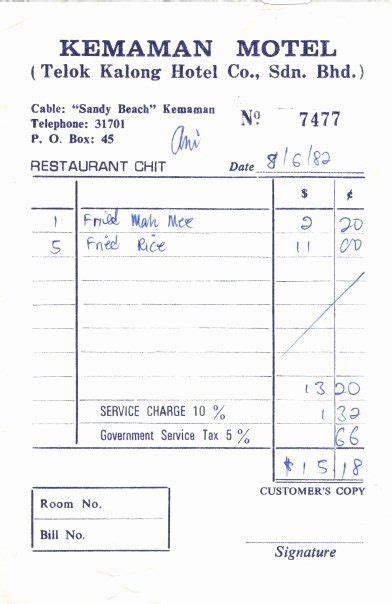 KEMAMAN MOTEL
(Telok Kalong Hotel Co., Sdn. Bhd.)
Cable: "Sandy Beach" Kemaman
Telephone: 31701
P. O. Box: 45
Ani
Nº 7477
RESTAURANT CHIT
Date 8/6/82
$ ¢
1 Fried Mah Mee 2 20
5 Fried Rice 11 00
13 20
SERVICE CHARGE 10 % 1 32
Government Service Tax 5 % 66
$ 15 18
CUSTOMER'S COPY
Room No.
Bill No.
Signature